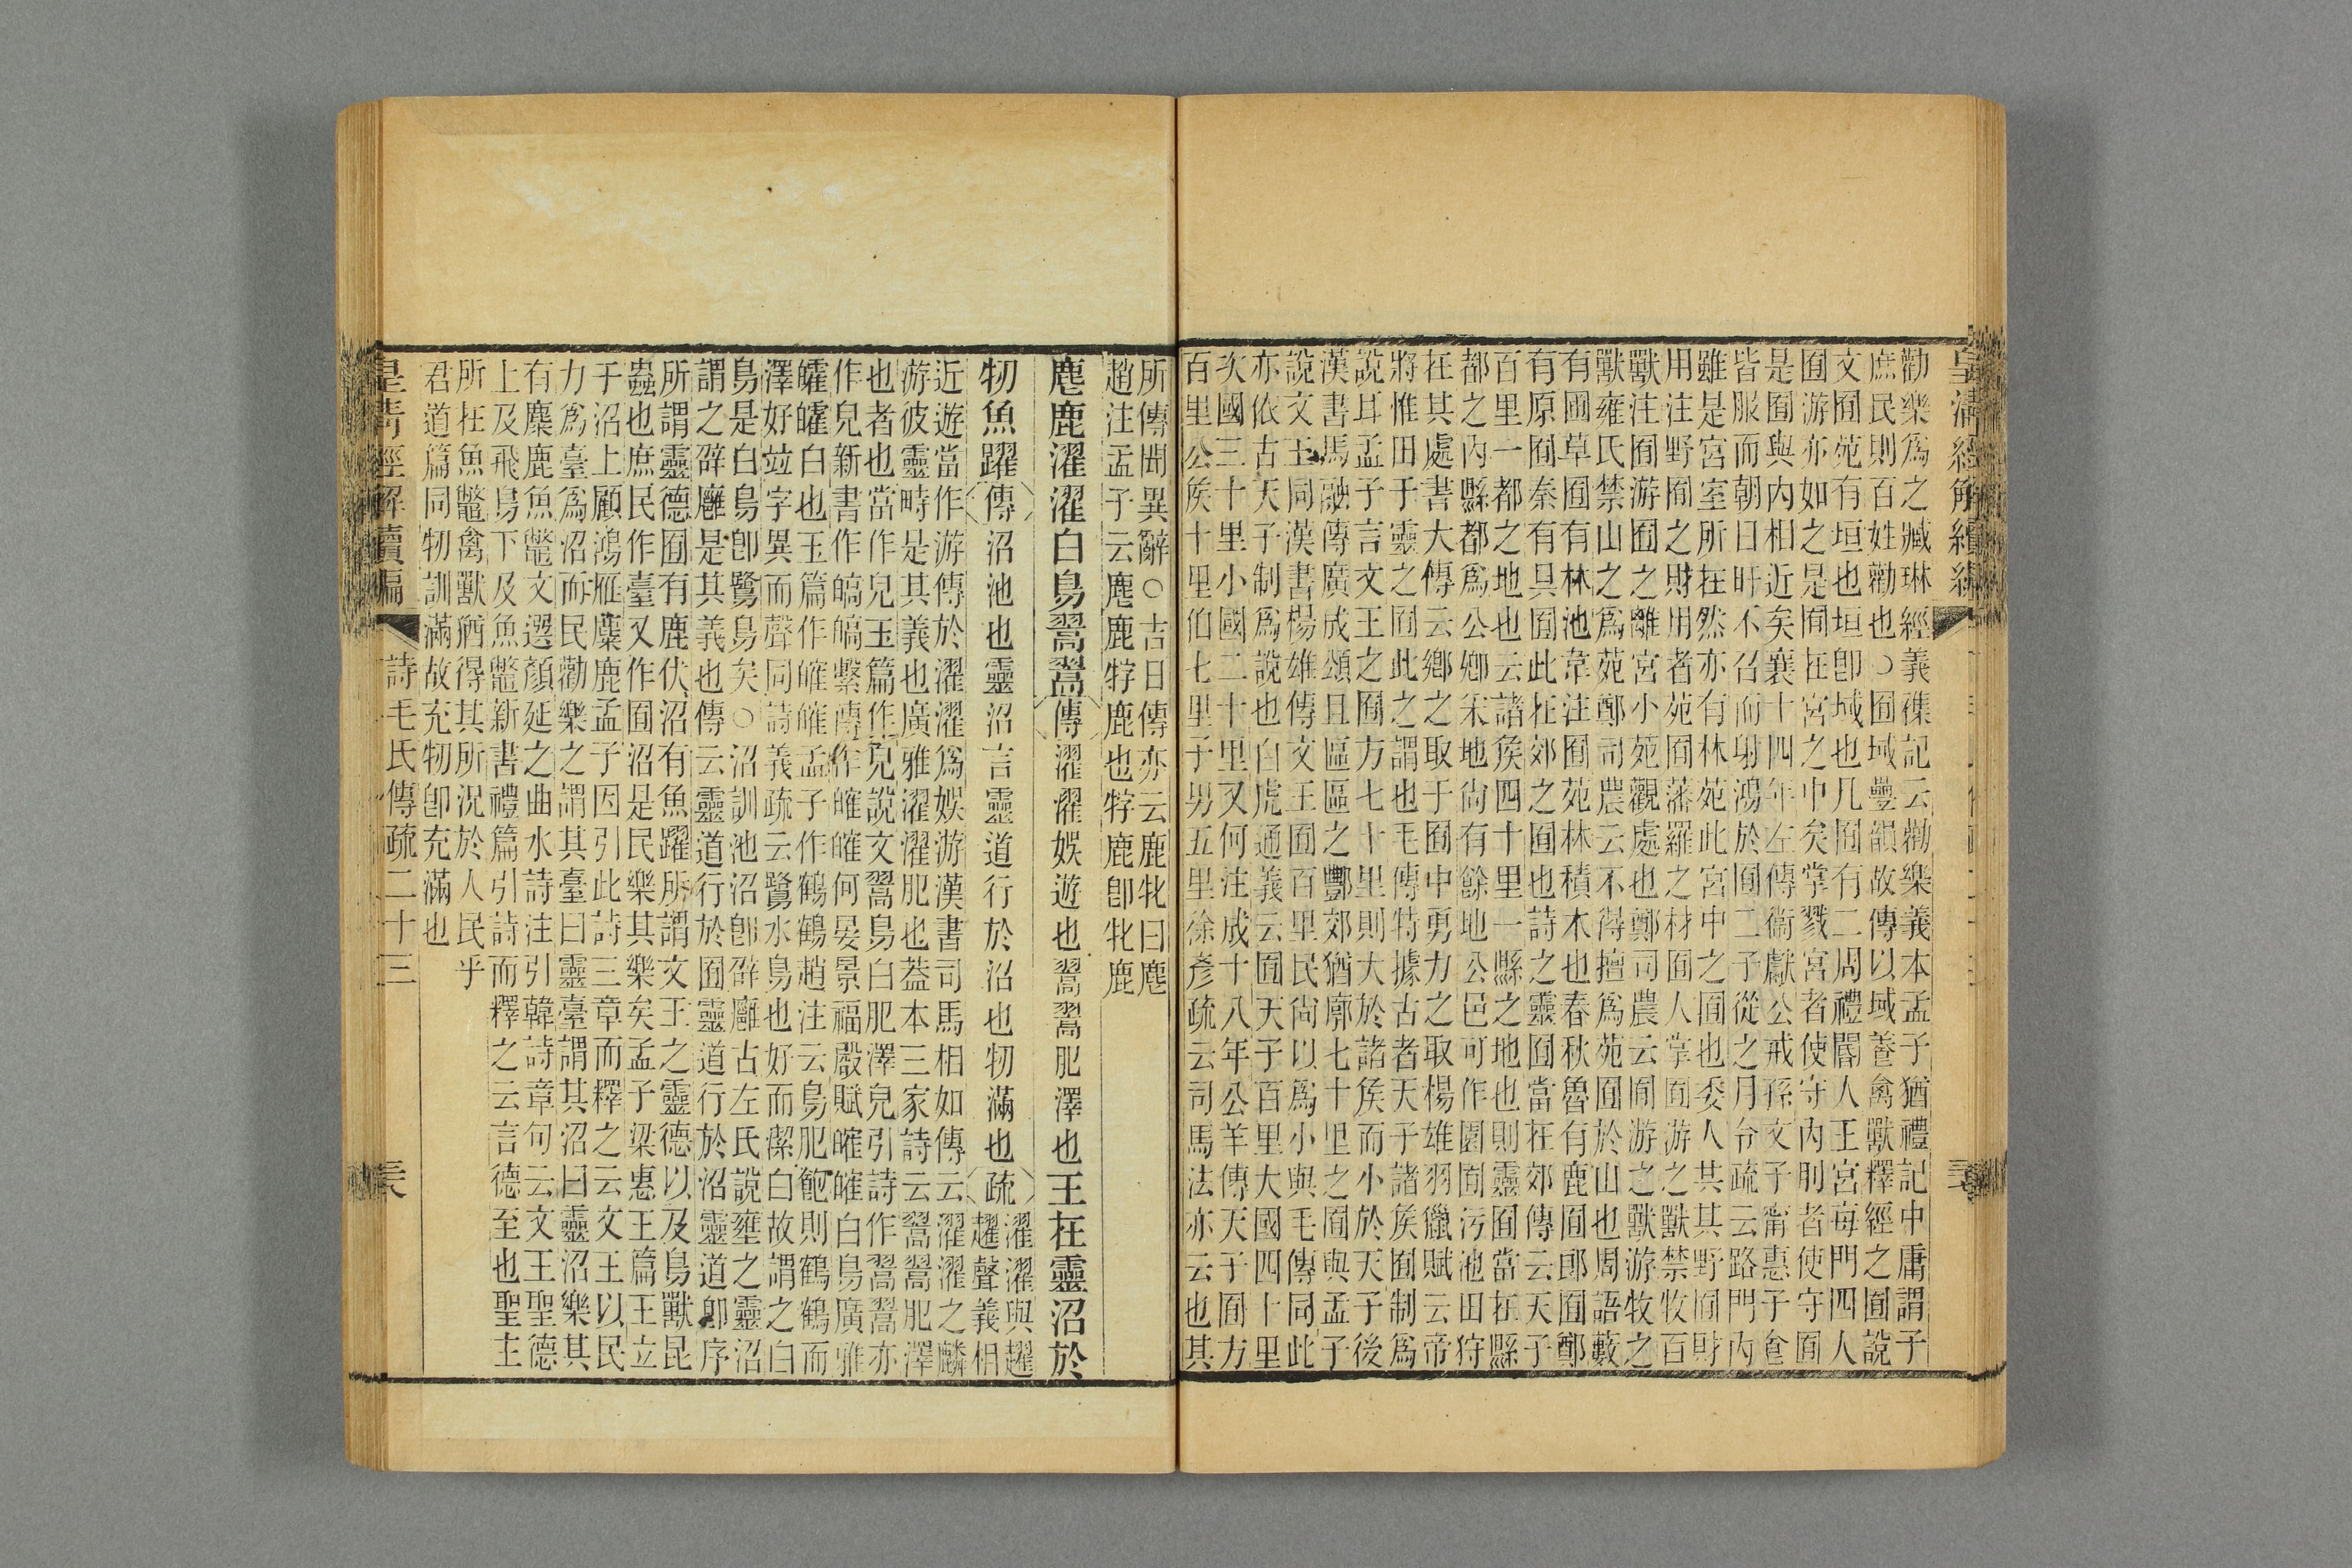 皇清經解續編
勸樂爲之臧琳經義襍記云勸樂義本孟子猶禮記中庸謂子
庶民則百姓勸也○囿域疊韻故傳以域養禽獸釋經之囿說
文囿苑有垣也垣卽域也凡囿有二周禮閽人王宮每門四人
囿游亦如之是囿在宮之中矣掌戮宮者使守內刖者使守囿
是囿與內相近矣襄十四年左傳衞獻公戒孫文子甯惠子食
皆服而朝日旰不召而射鴻於囿二子從之月令疏云路門內
雖是宮室所在然亦有林苑此宮中之囿也委人其其野囿財
用注野囿之財用者苑囿藩羅之材囿人掌囿游之獸禁牧百
獸注囿游囿之離宮小苑觀處也鄭司農云囿游之獸游牧之
獸雍氏禁山之爲苑鄭司農云不得擅爲苑囿於山也周語藪
有圃草囿有林池韋注囿苑林積木也春秋魯有鹿囿郎囿鄭
有原囿秦有具囿此在郊之囿也詩之靈囿當在郊傳云天子
百里一都之地也云諸矦四十里一縣之地也則靈囿當在縣
都之內縣都爲公鄉宋地尙有餘地公邑可作園囿污池田狩
在其處書大傳云鄉之取于囿中勇力之取楊雄羽獵賦云帝
將惟田于靈之囿此之謂也毛傳特據古者天子諸矦囿制爲
說耳孟子言文王之囿方七十里則大於諸矦而小於天子後
漢書馬融傳廣成頌且區區之酆郊猶廓七十里之囿與孟子
說文王同漢書楊雄傳文王囿百里民尙以爲小與毛傳同此
亦依古天子制爲說也白虎通義云囿天子百里大國四十里
次國三十里小國二十里又何注成十八年公羊傳天子囿方
百里公矦十里伯七里子男五里徐彥疏云司馬法亦云也其
所傳聞異辭○古日傳亦云鹿牝曰麀
趙注孟子云麀鹿牸鹿也牸鹿卽牝鹿
麀鹿濯濯白鳥翯翯傳濯濯娛遊也翯翯肥澤也王在靈沼於
牣魚躍傳沼池也靈沼言靈道行於沼也牣滿也疏濯濯與趯
趯聲義相
近遊當作游傳於濯濯爲娛游漢書司馬相如傳云濯濯之麟
游彼靈畤是其義也廣雅濯濯肥也葢本三家詩云翯翯肥澤
也者也當作皃玉篇作皃說文翯鳥白肥澤皃引詩作翯翯亦
作皃新書作皜皜繫傳作皠皠何晏景福殿賦皠皠白鳥廣雅
皬皬白也玉篇作皠皠孟子作鶴鶴趙注云鳥肥飽則鶴鶴而
澤好竝字異而聲同詩義疏云鷺水鳥也好而潔白故謂之白
鳥是白鳥卽鷺鳥矣○沼訓池沼卽辟廱古左氏說壅之靈沼
謂之辟廱是其義也傳云靈道行於囿靈道行於沼靈道卽序
所謂靈德囿有鹿伏沼有魚躍所謂文王之靈德以及鳥獸昆
蟲也庶民作臺又作囿沼是民樂其樂矣孟子梁惠王篇王立
于沼上顧鴻雁麋鹿孟子因引此詩三章而釋之云文王以民
力爲臺爲沼而民勸樂之謂其臺曰靈臺謂其沼曰靈沼樂其
有麋鹿魚鼈文選顏延之曲水詩注引韓詩章句云文王聖德
上及飛鳥下及魚鼈新書禮篇引詩而釋之云言德至也聖主
所在魚鼈禽獸猶得其所況於人民乎
君道篇同牣訓滿故充牣卽充滿也
皇清經解續編
詩毛氏傳疏二十三